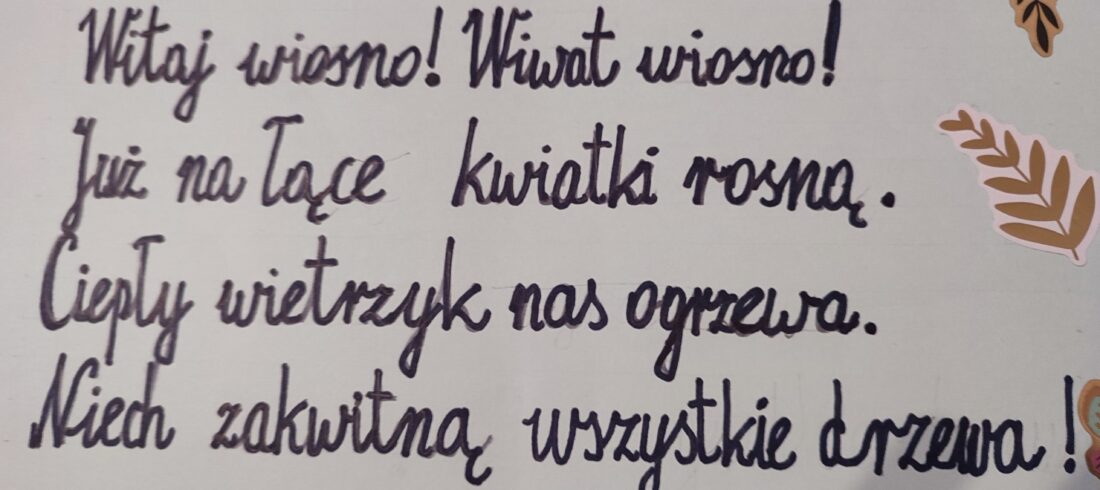 Witaj wiosno! Wiwat wiosno!
Już na łące kwiatki rosną.
Ciepły wietrzyk nas ogrzewa.
Niech zakwitną wszystkie drzewa!